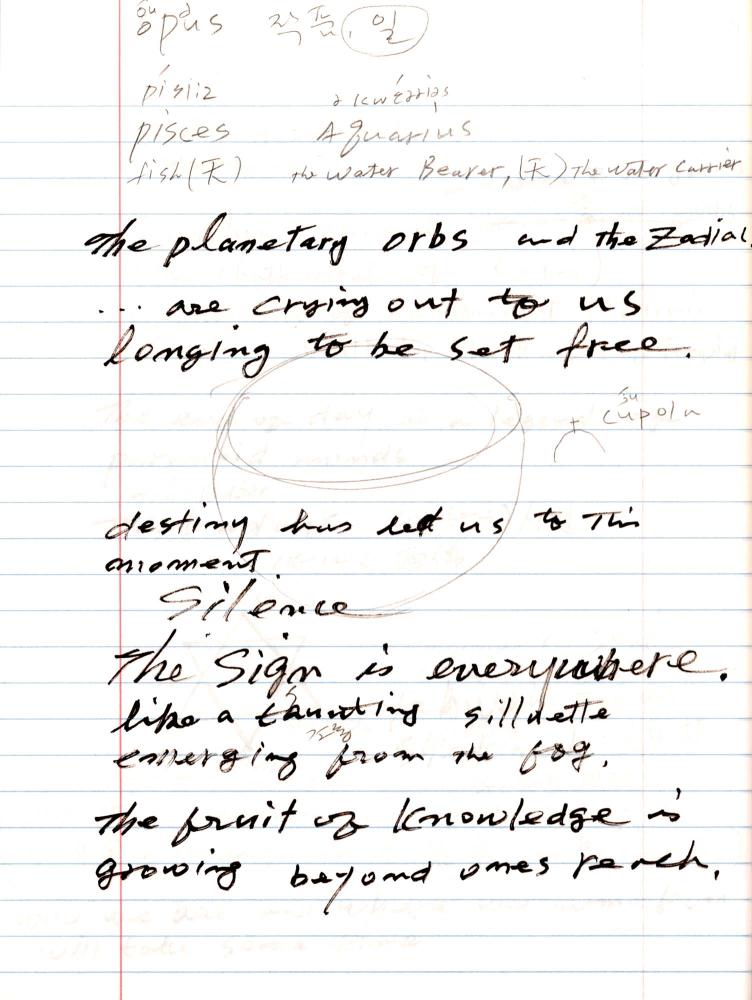 opus 작품, 일
pisiiz
pisces Aquarius
fish(天) the Water Bearer, (天) The Water Carrier
The planetary orbs and the Zadial.
... are crying out to us
longing to be set free.
cupola
destiny has led us to This
moment
Silence
The Sign is everywhere.
like a taunting silluette
emerging from the fog.
The fruit of knowledge is
growing beyond ones reach.